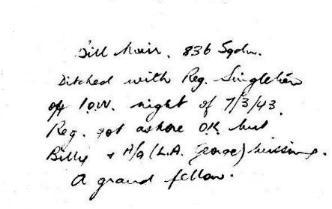 Bill Muir. 836 Sqdn.
Ditched with Reg. Singleton
off I.O.W. night of 7/3/43.
Reg. got ashore OK but
Billy & A/G (L.A. George) missing.
A grand fellow.